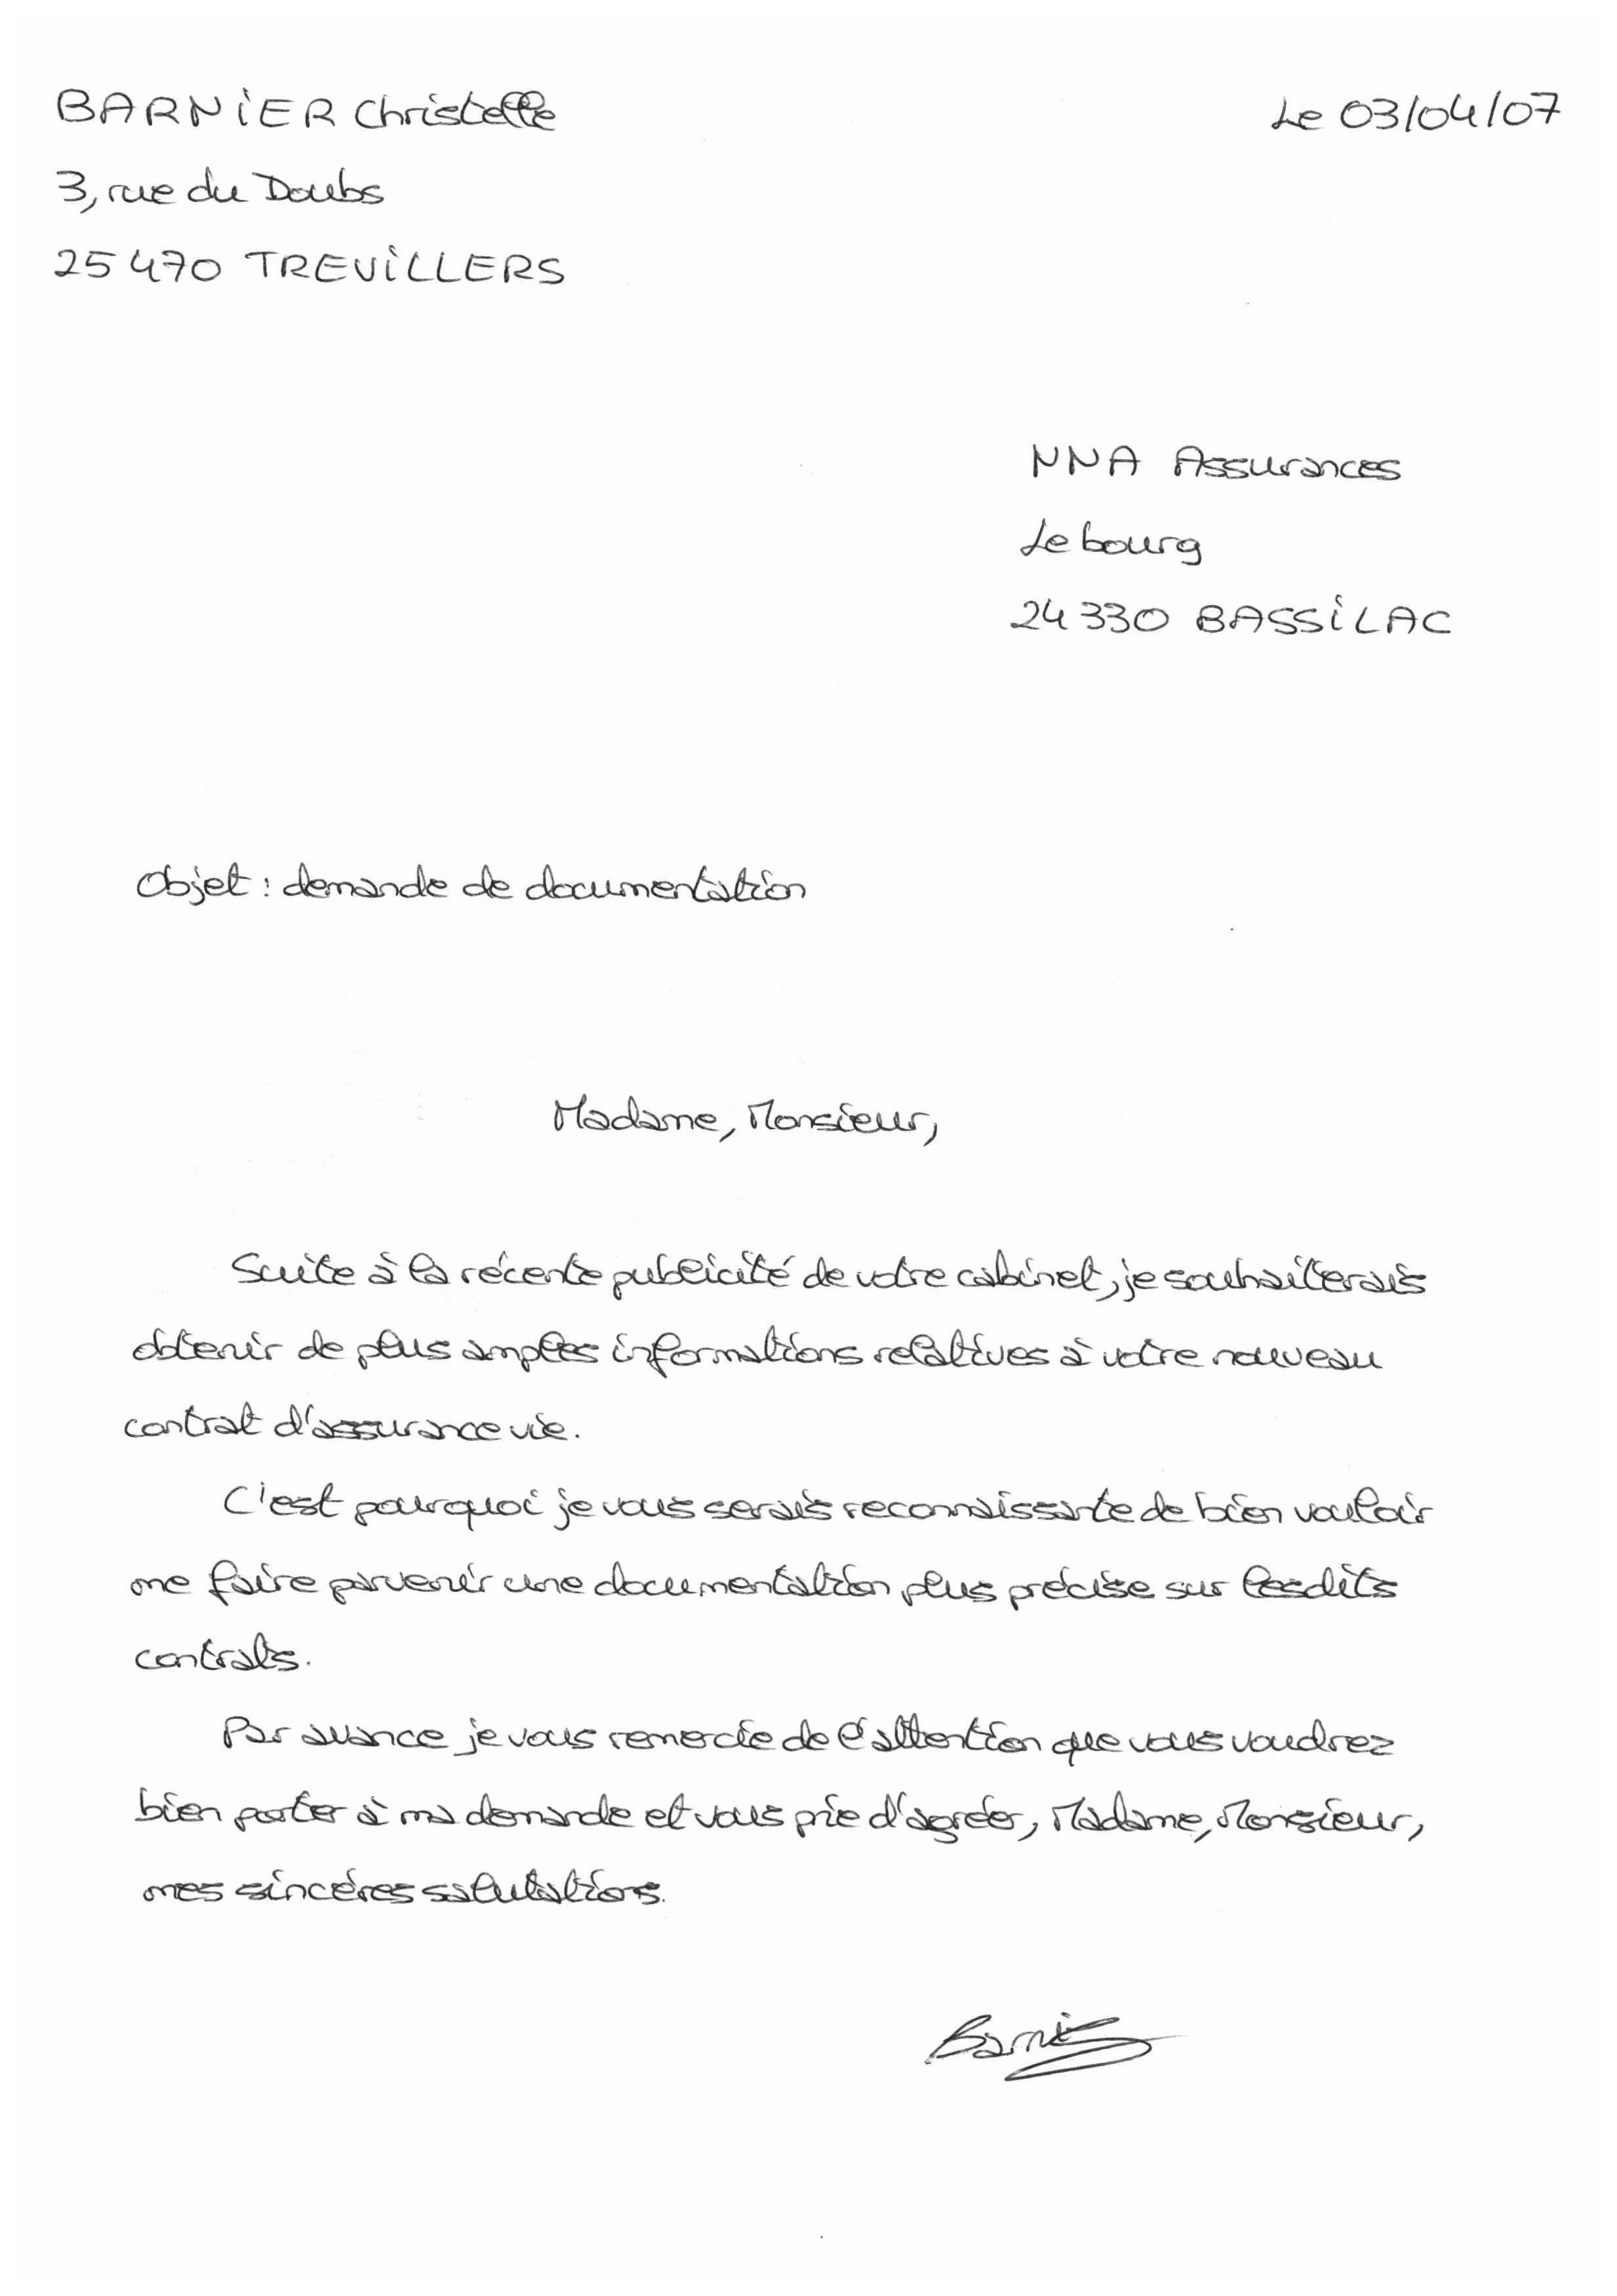 BARNIER Christelle
Le 03/04/07
3, rue du Doubs
25 470 TREVILLERS
NNA Assurances
Le bourg
24 330 BASSILAC
Objet : demande de documentation
Madame, Monsieur,
Suite à la récente publicité de votre cabinet, je souhaiterais
obtenir de plus amples informations relatives à votre nouveau
contrat d'assurance vie.
C'est pourquoi je vous serais reconnaissante de bien vouloir
me faire parvenir une documentation plus précise sur lesdits
contrats.
Par avance je vous remercie de l'attention que vous voudrez
bien porter à ma demande et vous prie d'agréer, Madame, Monsieur,
mes sincéres salutations.
Barnier